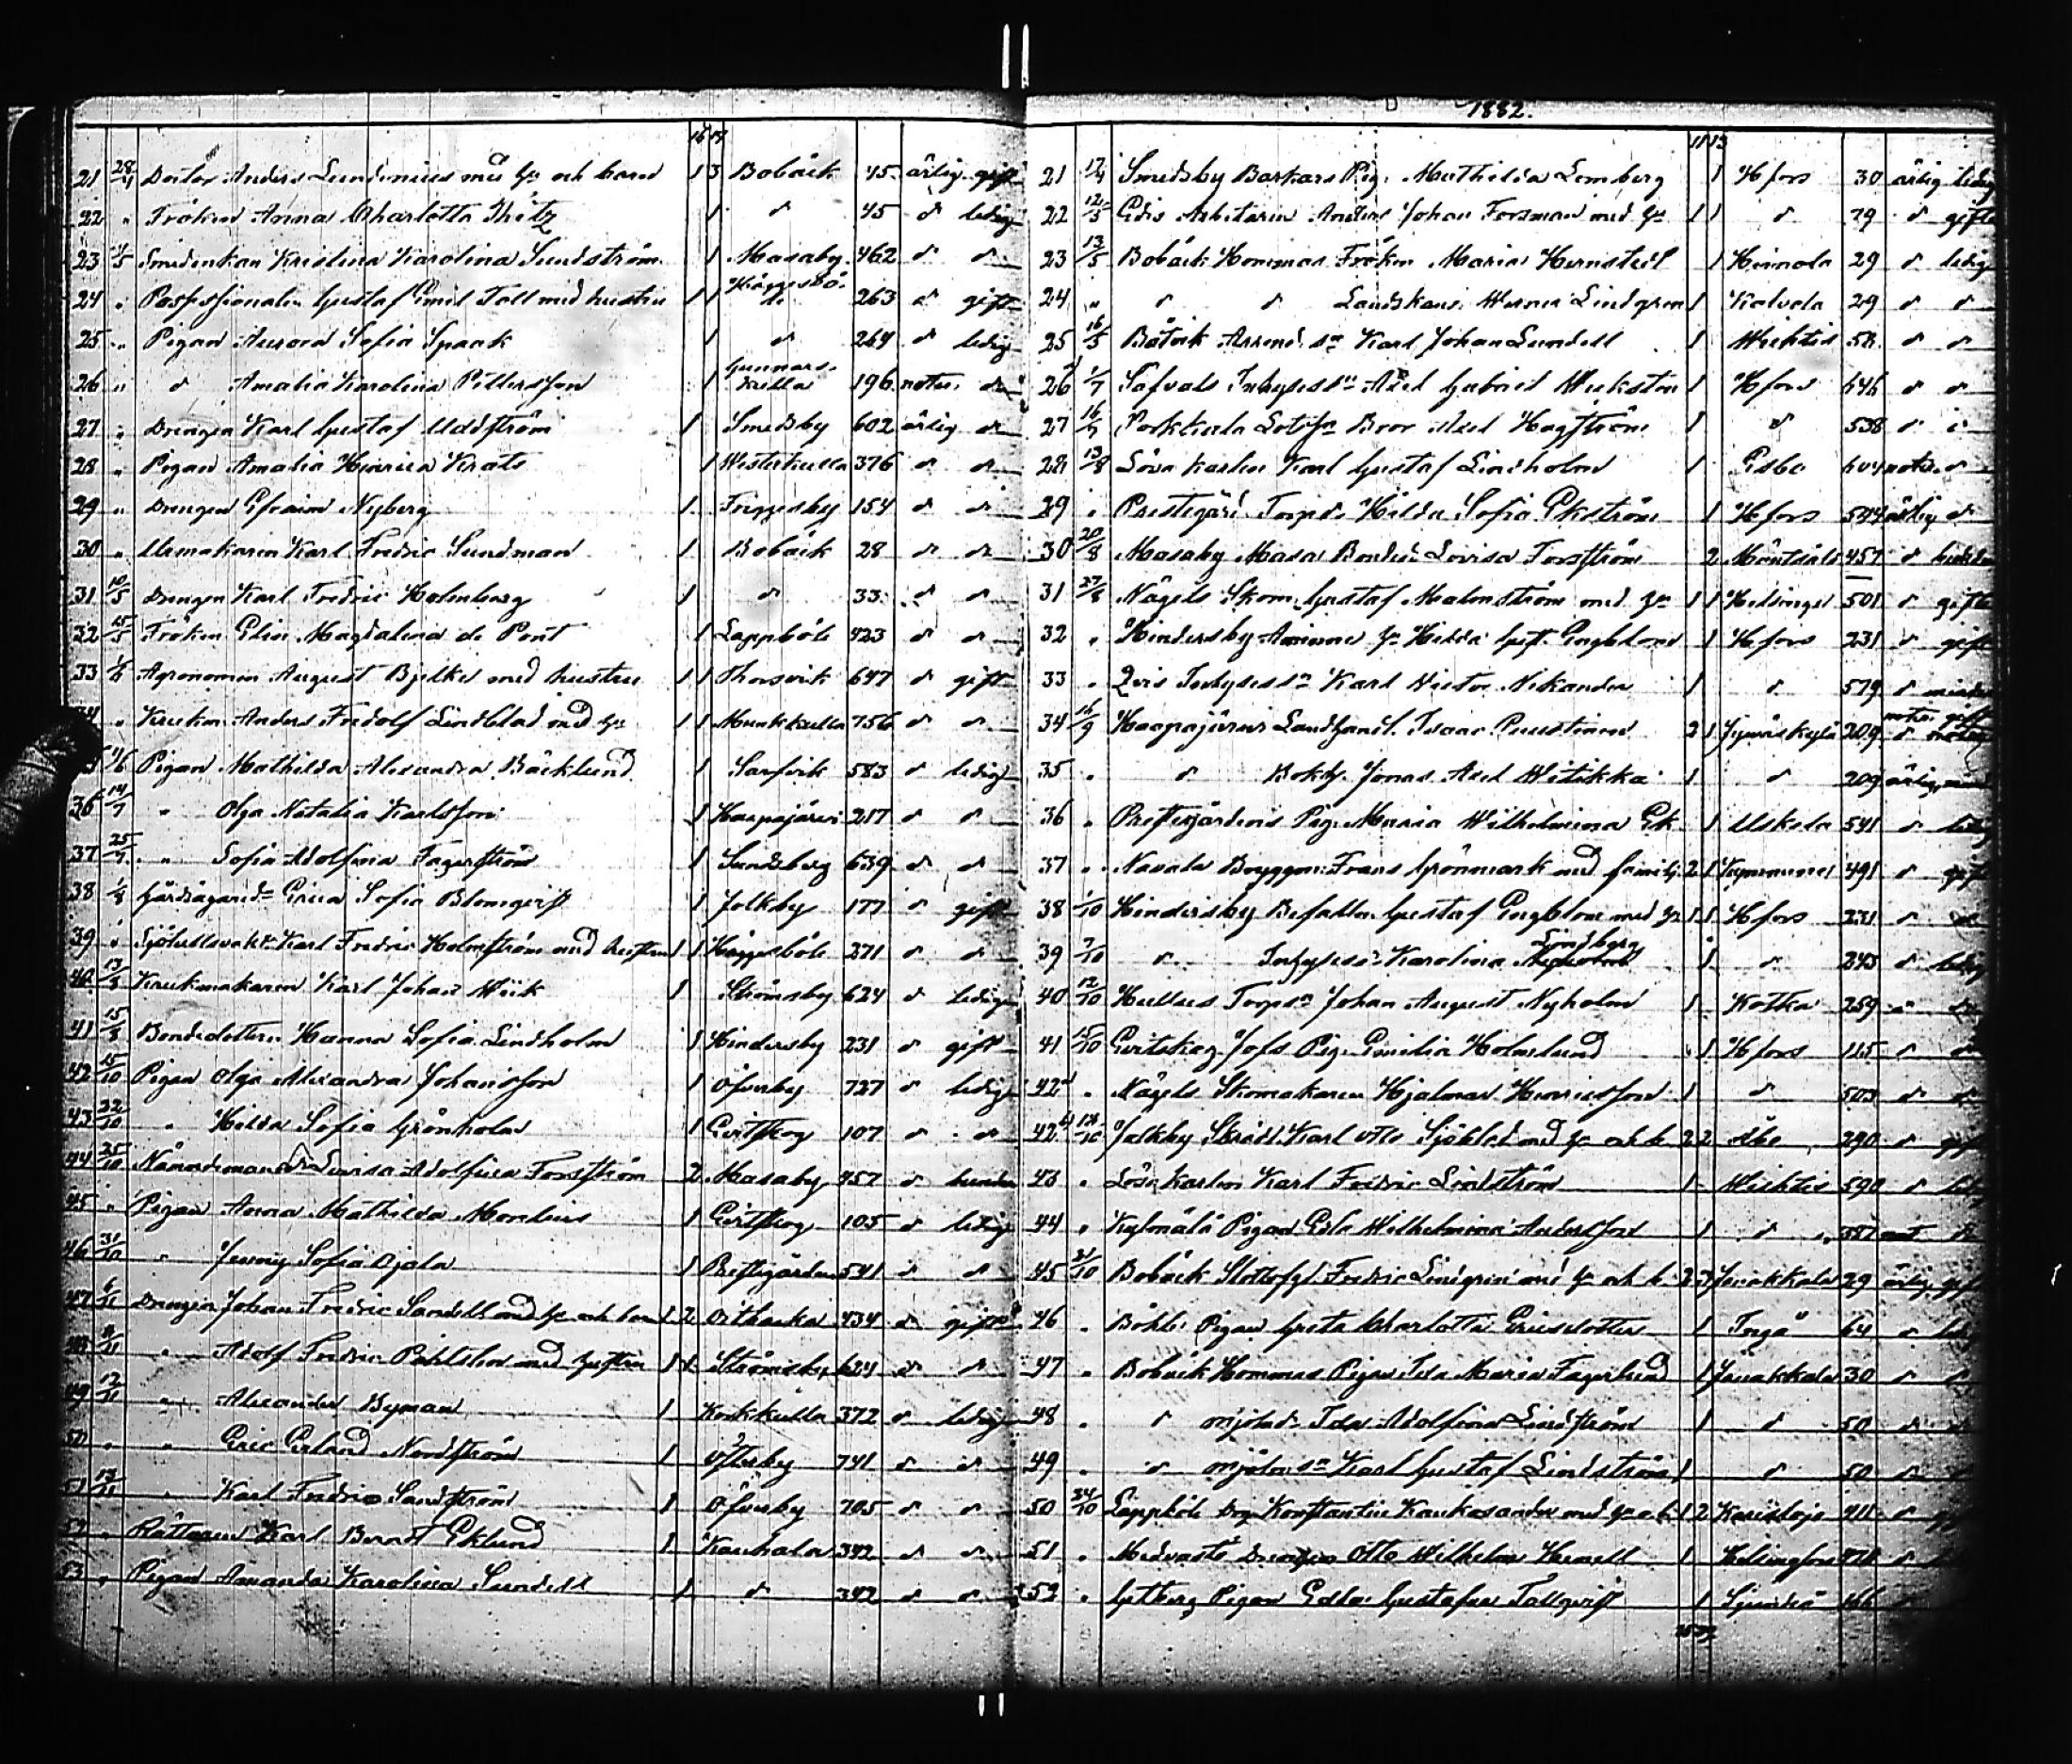 16 17
21 28/4 Doctor Anders Lundenius med h:u och barn 1 3 Bobäck 45 ärlig gift
22 " Fröken Anna Charlotta 1 d:o 45 d:o ledig
23 1/5 Smedenkan Kristina Karolina Sundström 1 Masaby 462 d:o d:o
24 " Possessionaten Gustaf Emil Tall med hustru 1 1 Häggesböle 263 d:o gift
25 " Pigan Aurora Sofia Spaak 1 d:o 264 d:o ledig
26 " d:o Amalia Karolina Pettersson 1 Gunnarskulla 196 noter. d:o
27 " Drengen Karl Gustaf Uddström 1 Smedsby 602 ärlig d:o
28 " Pigan Amalia Henrica Krats 1 Westerkulla 376 d:o d:o
29 " Drengen Efraim Nyberg 1 Friggesby 154 d:o d:o
30 " Urmakaren Karl Fredric Sundman 1 Bobäck 28 d:o d:o
31 10/5 Drengen Karl Fredric Holmberg 1 d:o 33 d:o d:o
32 15/5 Fröken Elin Magdalena de Pont 1 Lappböle 423 d:o d:o
33 1/6 Agronomen August Bjelke med hustru 1 1 Thorsvik 647 d:o gift
34 " Anders Fredolf Lindblad med h:u 1 1 Munkkulla 756 d:o d:o
11/6 Pigan Mathilda Alexandra Bäcklund 1 Sarfvik 583 d:o ledig
36 14/7 " Olga Natalia Karlsson 1 Haapajärvi 217 d:o d:o
37 25/7 " Sofia Adolfina Fagerström 1 Sundsberg 639 d:o d:o
38 1/8 Gårdsägarens Erica Sofia Blomqvist 1 Jolkby 177 d:o gift
39 " Karl Fredric Holmström med hustru 1 1 Häggesböle 271 d:o d:o
40 13/8 Krukmakaren Karl Johan Wiik 1 Strömsby 624 d:o ledig
41 15/8 Bondedottern Hanna Sofia Lindholm 1 Hindersby 231 d:o gift
42 15/10 Pigan Olga Alexandra Johansson 1 Öfverby 727 d:o ledig
43 22/10 " Hilda Sofia Grönholm 1 Evitskog 107 d:o d:o
44 25/10 Nämndemans Lovisa Adolfina Forsström 2 Masaby 457 d:o
45 " Pigan Anna Mathilda Morelius 1 Evitskog 105 d:o ledig
46 31/10 " Jenny Sofia Ojala 1 Prestgården 541 d:o d:o
47 6/11 Drengen Johan Fredric Sandell med h:u och barn 1 2 Oitbacka 434 d:o gift
11/11 " Adolf Fredric med hustru 1 1 Strömsby 624 d:o d:o
49 12/11 " Alexander Byman 1 Korkkulla 372 d:o ledig
50 " " Eric Erland Nordström 1 Österby 741 d:o d:o
51 13/11 " Karl Fredric Sandström 1 Öfverby 705 d:o d:o
52 " Rättaren Karl Bernt Eklund 1 Kauhala 342 d:o d:o
53 " Pigan Amanda Karolina Sundell 1 d:o 342 d:o d:o
1882.
11 13
21 17/4 Smedsby Backars Pig. Mathilda Lemberg 1 H:fors 30 ärlig ledig
22 12/5 Edis Arbetaren Anders Johan Forsman med h:u 1 1 d:o 79 d:o gifte
23 13/5 Bobäck Hommas Fröken Maria Hernstedt 1 Heinola 29 d:o ledig
24 " d:o d:o Landskans. Werner Lindgren 1 Kalvola 29 d:o d:o
25 16/5 Båtvik Arrend. s:n Karl Johan Lundell 1 Wichtis 58 d:o d:o
26 1/7 Safvals Inhyses s:n Axel Gabriel Wickstrm 1 H:fors 646 d:o d:o
27 16/7 Porkkala Lots s:n Bror Axel Hagström 1 d:o 538 d:o d:o
28 13/8 Löse karlen Karl Gustaf Lindholm 1 Esbo 604 noter. d:o
29 " Prestegård. Torp. d. Hilda Sofia Ekström 1 H:fors 544 ärlig d:o
30 20/8 Masaby Masas Bonded. Lovisa Forsström 2 Mäntsälä 457 d:o
31 27/8 Nägels Skom. Gustaf Malmström med h:u 1 1 Helsinge 501 d:o gifte
32 " Hindersby h:u Hilda Gust. Engblom 1 H:fors 231 d:o gift
33 " Qvis Inhyses s:n Karl Victor Nikander 1 d:o 579 d:o
34 16/9 Haapajärvi Landthandl. Isaac Puustinen 2 1 Jyväskylä 209 noter. gift
35 " d:o Bokh. Jonas Axel Witikka 1 d:o 209 ärlig
36 " Prestegårdens Pig. Maria Wilhelmina Ek 1 Uskela 541 d:o ledig
37 " Navala Byggm. Frans Grönmark med familj 2 1 Kymmene 491 d:o gift
38 1/10 Hindersby Befalln. Gustaf Engblom med h:u 1 1 H:fors 231 d:o d:o
39 7/10 d:o Inhyses Karolina Lindberg 1 d:o 243 d:o ledig
40 12/10 Hulluss Torp s:n Johan August Nyholm 1 Kotka 259 " d:o
41 15/10 Evitskog Jofs Pig. Emilia Holmlund 1 H:fors 115 d:o d:o
42 a " Nägels Skomakaren Hjalmar Henricsson 1 d:o 503 d:o d:o
42 b 18/10 Jolkby Skrädd. Karl Otto Sjöblad med h:u och b. 2 2 Åbo 290 d:o gift
43 " Löse karlen Karl Fredric Lindström 1 Wichtis 590 d:o
44 " Kylmälä Pigan Edla Wilhelmina Andersson 1 d:o 387 d:o
45 21/10 Bobäck Fredric Lindgren med h:u och b. 2 3 Janakkala 29 ärlig gift
46 " Böhle Pigan Greta Charlotta Ericsdotter 1 Ingå 64 d:o
47 " Bobäck Hommas Pigan Ida Maria Fagerlund 1 Janakkala 30 d:o
48 " d:o Mjöln. d. Ida Adolfina Lindström 1 d:o 50 d:o
49 " d:o Mjöln. s:n Karl Gustaf Lindström 1 d:o 50 d:o
50 24/10 Lappböle Drg. Konstantin Kaukasander med h:u o. b. 1 2 Karislojo 411 d:o
51 " Medvastö Drengen Otto Wilhelm Hernell 1 Helsingfors d:o
52 " Getberg Pigan Edla Gustafva Tallqvist 1 Sjundeå 166